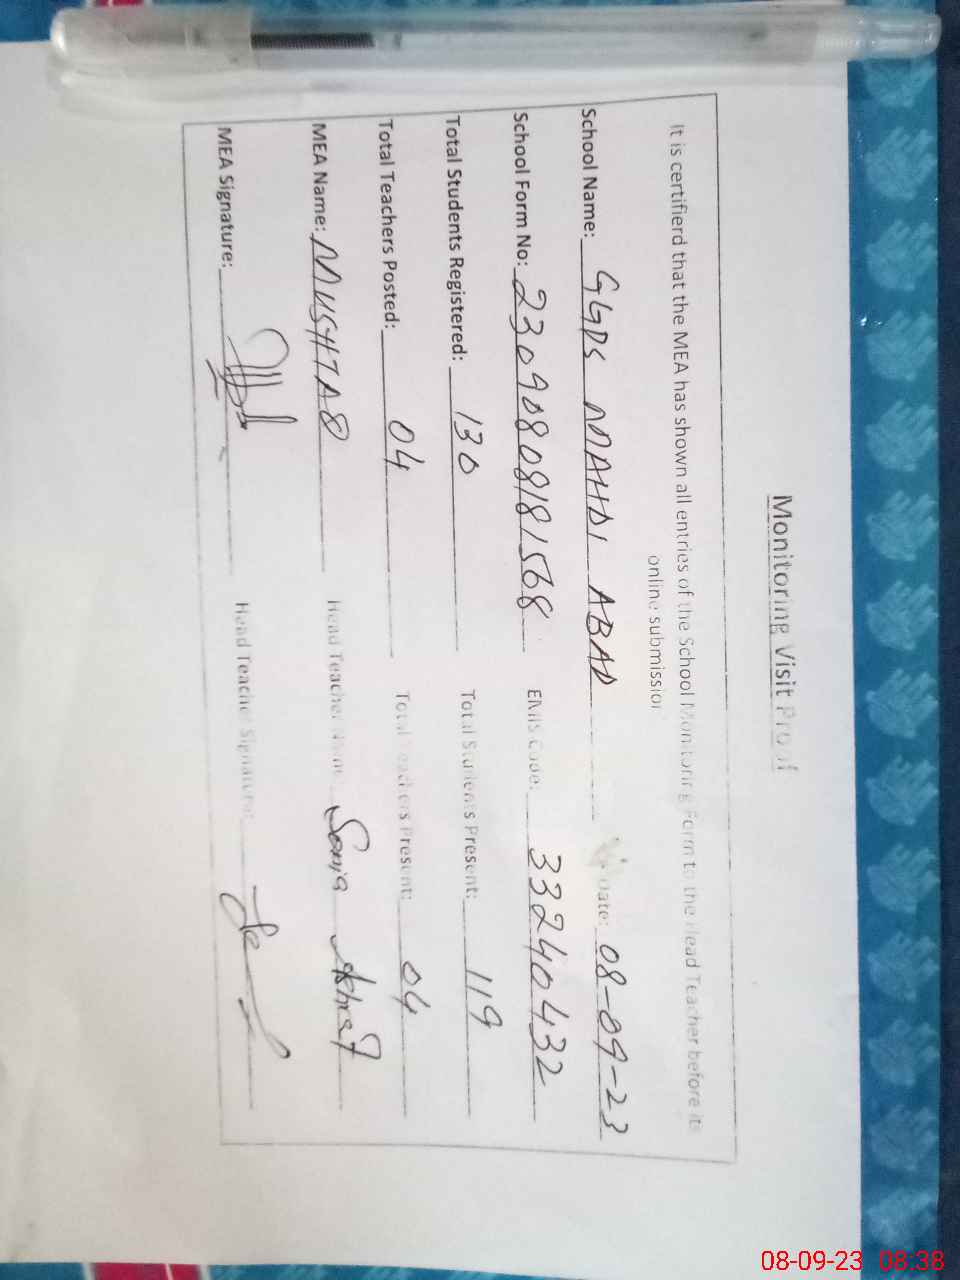 Monitoring Visit Proof
It is certifierd that the MEA has shown all entries of the School Monitoring Form to the Head Teacher before its
online submission
School Name: GGPS MAHDI ABAD Date: 08-09-23
School Form No: 23090808181568 EMIS Code: 33240432
Total Students Registered: 130 Total Students Present: 119
Total Teachers Posted: 04 Total Teachers Present: 04
MEA Name: MUSHTAQ Head Teacher Name: Sonia Ashraf
MEA Signature: Head Teacher Signature:
08-09-23 08:38